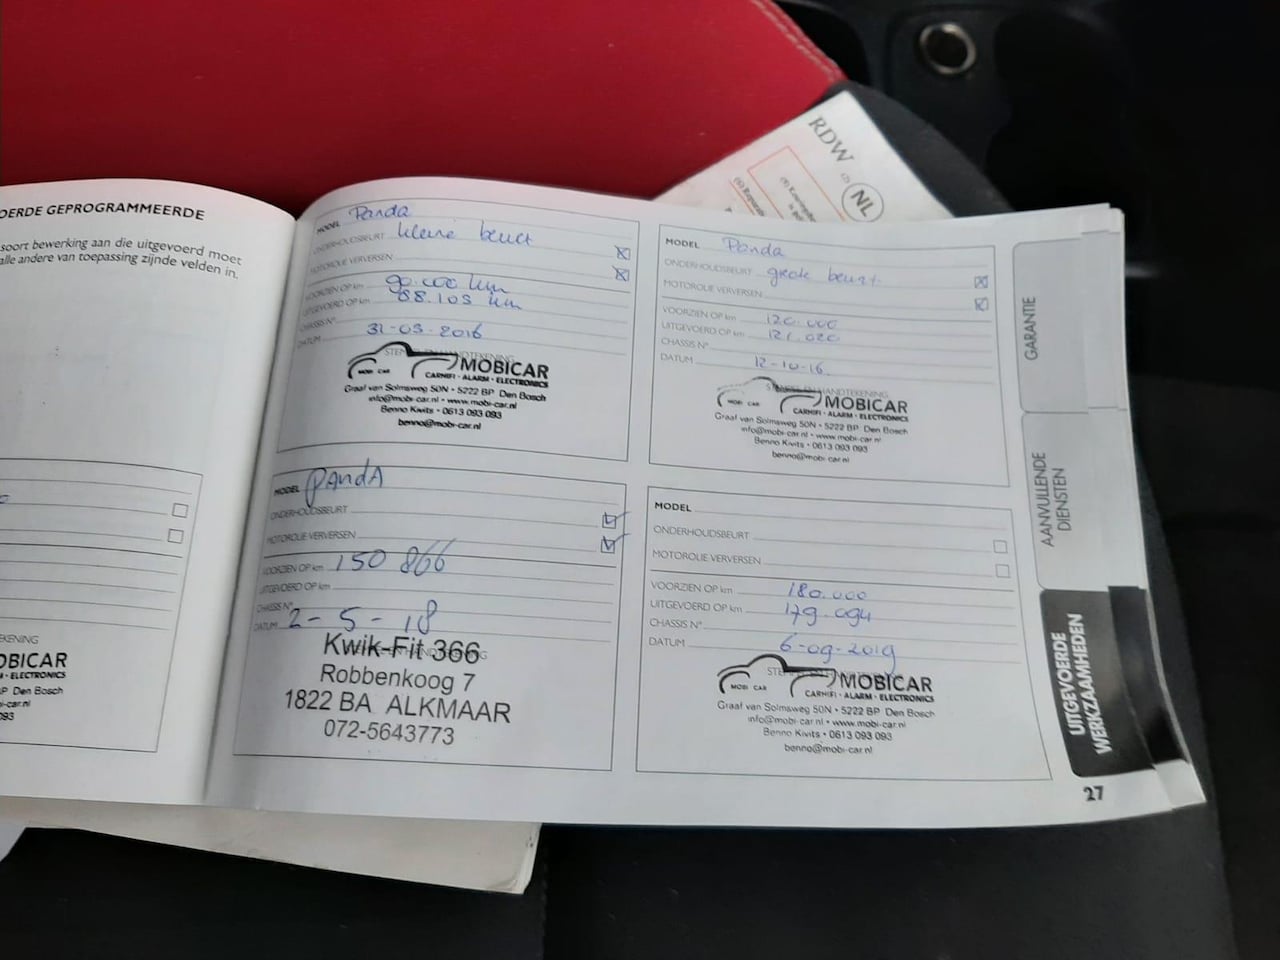 RDW
(2)
NL
OERDE GEPROGRAMMEERDE
soort bewerking aan die uitgevoerd moet
alle andere van toepassing zijnde velden in.
EKENING
OBICAR
• ELECTRONICS
P Den Bosch
i-car.nl
093
MODEL Panda
ONDERHOUDSBEURT kleine beurt
MOTOROLIE VERVERSEN
VOORZIEN OP km 90.000 km
UITGEVOERD OP km 88.103 km
CHASSIS N°
DATUM 31-03-2016
MOBICAR
MOBI CAR CARHIFI • ALARM • ELECTRONICS
Graaf van Solmsweg 50N • 5222 BP Den Bosch
info@mobi-car.nl • www.mobi-car.nl
Benno Kivits • 0613 093 093
benno@mobi-car.nl
MODEL Panda
ONDERHOUDSBEURT grote beurt
MOTOROLIE VERVERSEN
VOORZIEN OP km 120.000
UITGEVOERD OP km 121.020
CHASSIS N°
DATUM 12-10-16
MOBICAR
MOBI CAR CARHIFI • ALARM • ELECTRONICS
Graaf van Solmsweg 50N • 5222 BP Den Bosch
info@mobi-car.nl • www.mobi-car.nl
Benno Kivits • 0613 093 093
benno@mobi-car.nl
MODEL PANdA
ONDERHOUDSBEURT
MOTOROLIE VERVERSEN
VOORZIEN OP km 150 866
UITGEVOERD OP km
CHASSIS N°
DATUM 2-5-18
Kwik-Fit 366
Robbenkoog 7
1822 BA ALKMAAR
072-5643773
MODEL
ONDERHOUDSBEURT
MOTOROLIE VERVERSEN
VOORZIEN OP km 180.000
UITGEVOERD OP km 179.094
CHASSIS N°
DATUM 6-09-2019
MOBICAR
MOBI CAR CARHIFI • ALARM • ELECTRONICS
Graaf van Solmsweg 50N • 5222 BP Den Bosch
info@mobi-car.nl • www.mobi-car.nl
Benno Kivits • 0613 093 093
benno@mobi-car.nl
GARANTIE
AANVULLENDE
DIENSTEN
UITGEVOERDE
WERKZAAMHEDEN
27